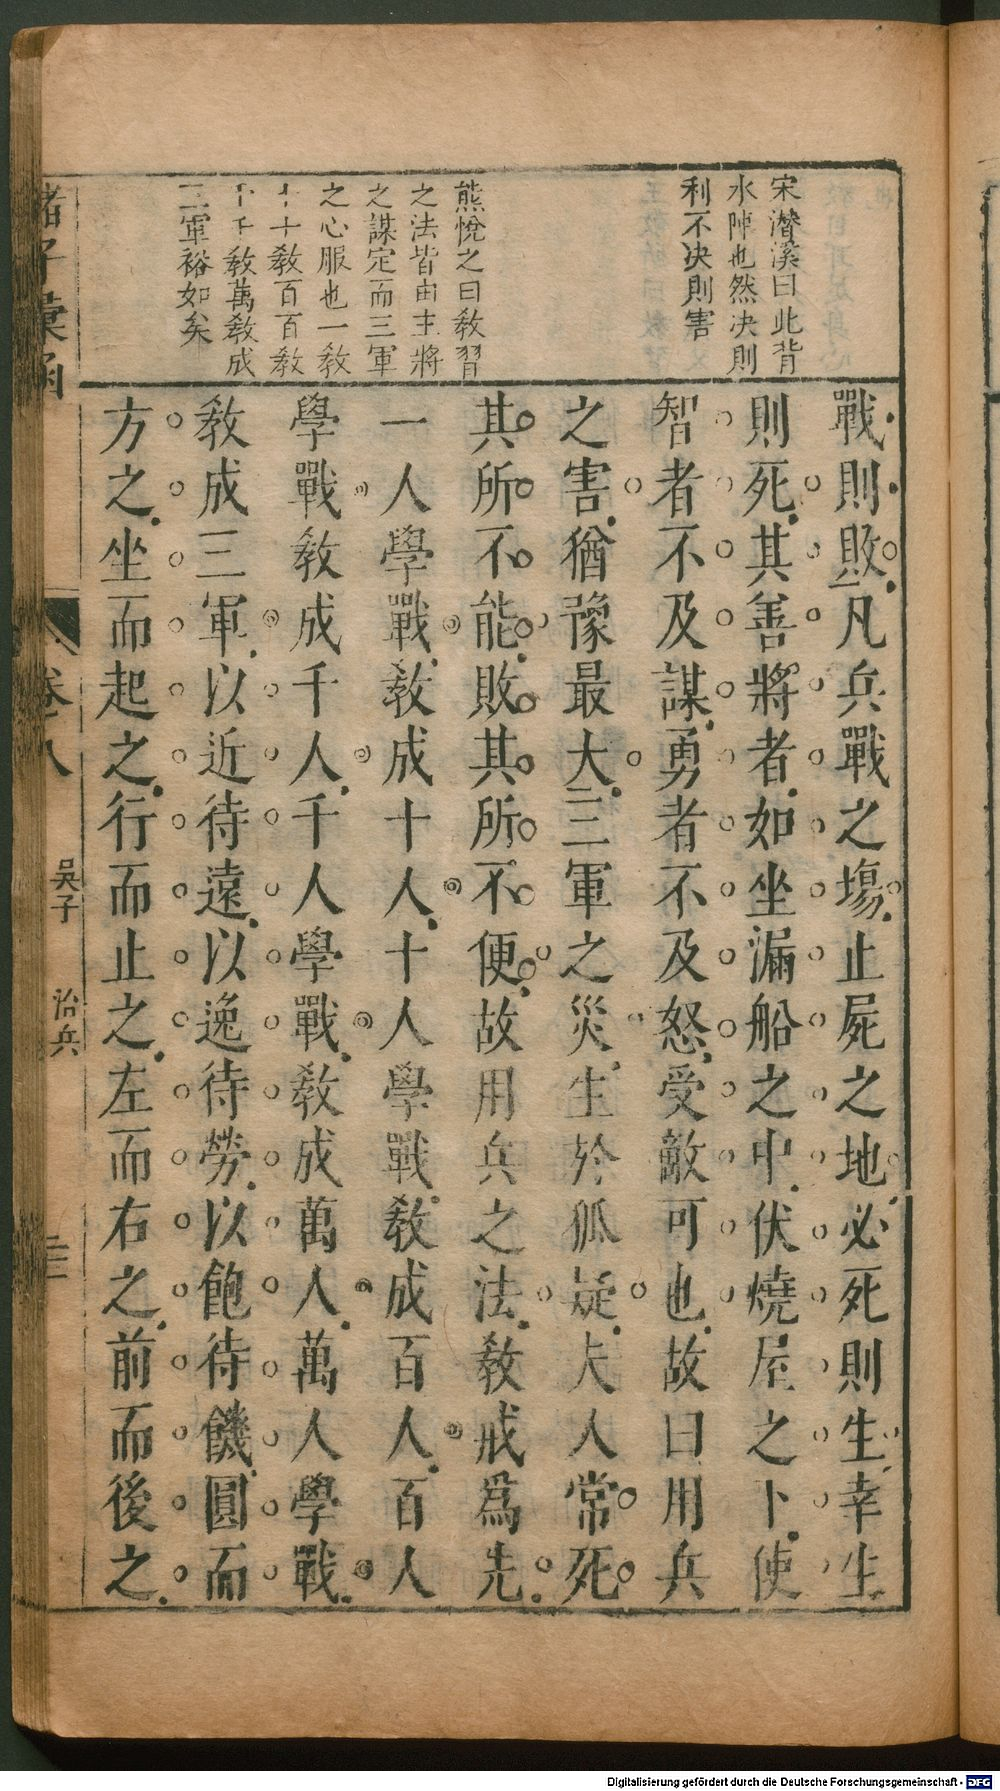 宋濳溪曰此背
水陣也然决則
利不决則害
熊悅之曰敎習
之法皆由主將
之謀定而三軍
之心服也一敎
十十敎百百敎
千千敎萬敎成
三軍裕如矣
戰則敗凡兵戰之塲止屍之地必死則生幸生
則死其善將者如坐漏船之中伏燒屋之下使
智者不及謀勇者不及怒受敵可也故曰用兵
之害猶豫最大三軍之災生於狐疑夫人常死
其所不能敗其所不便故用兵之法敎戒爲先
一人學戰敎成十人十人學戰敎成百人百人
學戰敎成千人千人學戰敎成萬人萬人學戰
敎成三軍以近待遠以逸待勞以飽待饑圓而
方之坐而起之行而止之左而右之前而後之
諸子彙函
卷十八
吳子 治兵
三
Digitalisierung gefördert durch die Deutsche Forschungsgemeinschaft - DFG